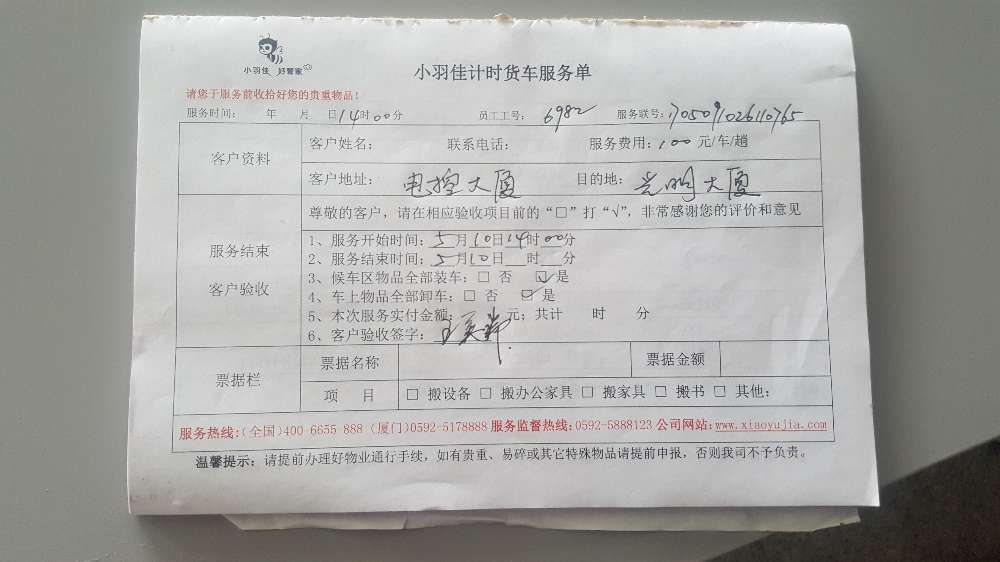 小羽佳 好管家
小羽佳计时货车服务单
请您于服务前收拾好您的贵重物品!
服务时间: 年 月 日14时00分 员工工号: 6982 服务联号:170509102610765
客户资料
客户姓名: 联系电话: 服务费用:100元/车/趟
客户地址: 电控大厦 目的地: 光明大厦
服务结束
客户验收
尊敬的客户，请在相应验收项目前的“□”打“√”，非常感谢您的评价和意见
1、服务开始时间:5月10日14时00分
2、服务结束时间:5月10日 时 分
3、候车区物品全部装车:□ 否 ☑是
4、车上物品全部卸车:□ 否 ☑是
5、本次服务实付金额: 元; 共计 时 分
6、客户验收签字:
票据栏
票据名称 票据金额
项 目 □ 搬设备 □ 搬办公家具 □ 搬家具 □ 搬书 □ 其他:
服务热线:(全国)400-6655 888 (厦门)0592-5178888 服务监督热线:0592-5888123 公司网站:www.xiaoyujia.com
温馨提示: 请提前办理好物业通行手续，如有贵重、易碎或其它特殊物品请提前申报，否则我司不予负责。